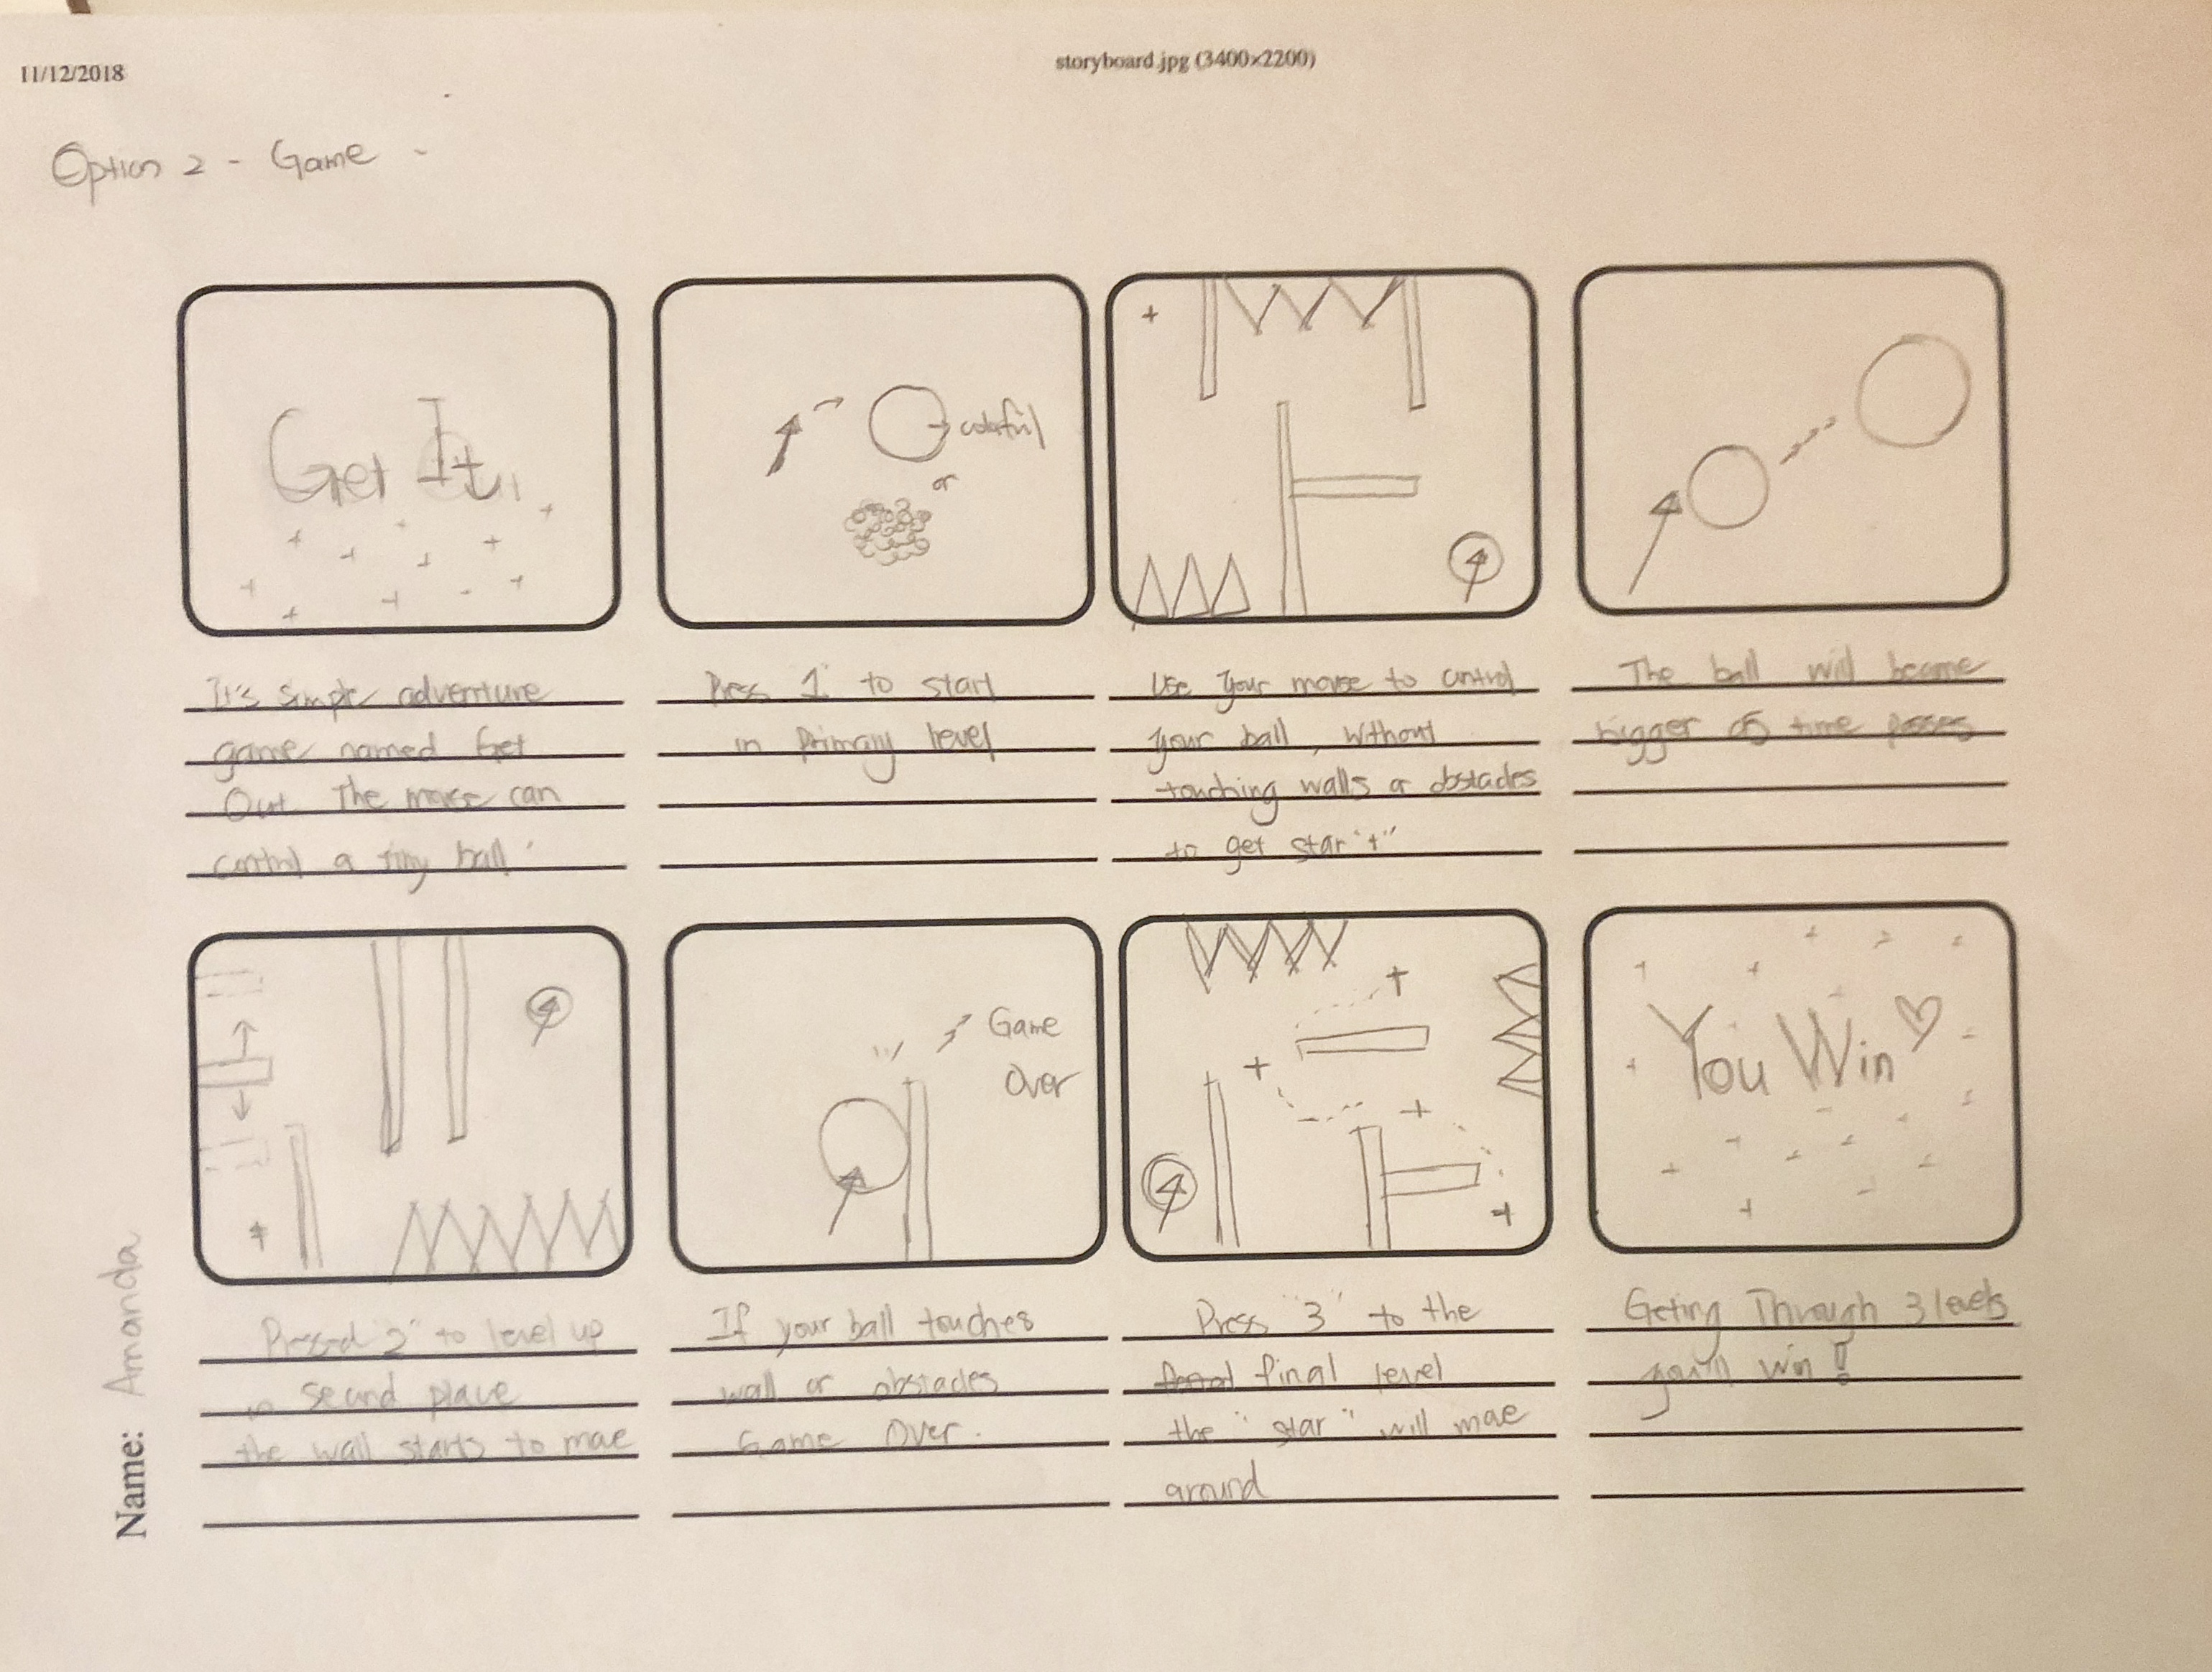 11/12/2018
storyboard.jpg (3400×2200)
Option 2 - Game -
Get It
colorful
or
It's simple adventure
game named Get
Out. The mouse can
control a tiny ball.
Press "1" to start
in Primary level
Use your mouse to control
your ball, without
touching walls or obstacles
to get star "+"
The ball will become
bigger as time passes
Game
Over
You Win
Pressed "2" to level up
in second place
the wall starts to move
If your ball touches
wall or obstacles
Game Over.
Press "3" to the
final level
the "star" will move
around
Geting Through 3 levels
you'll win!
Name: Amanda